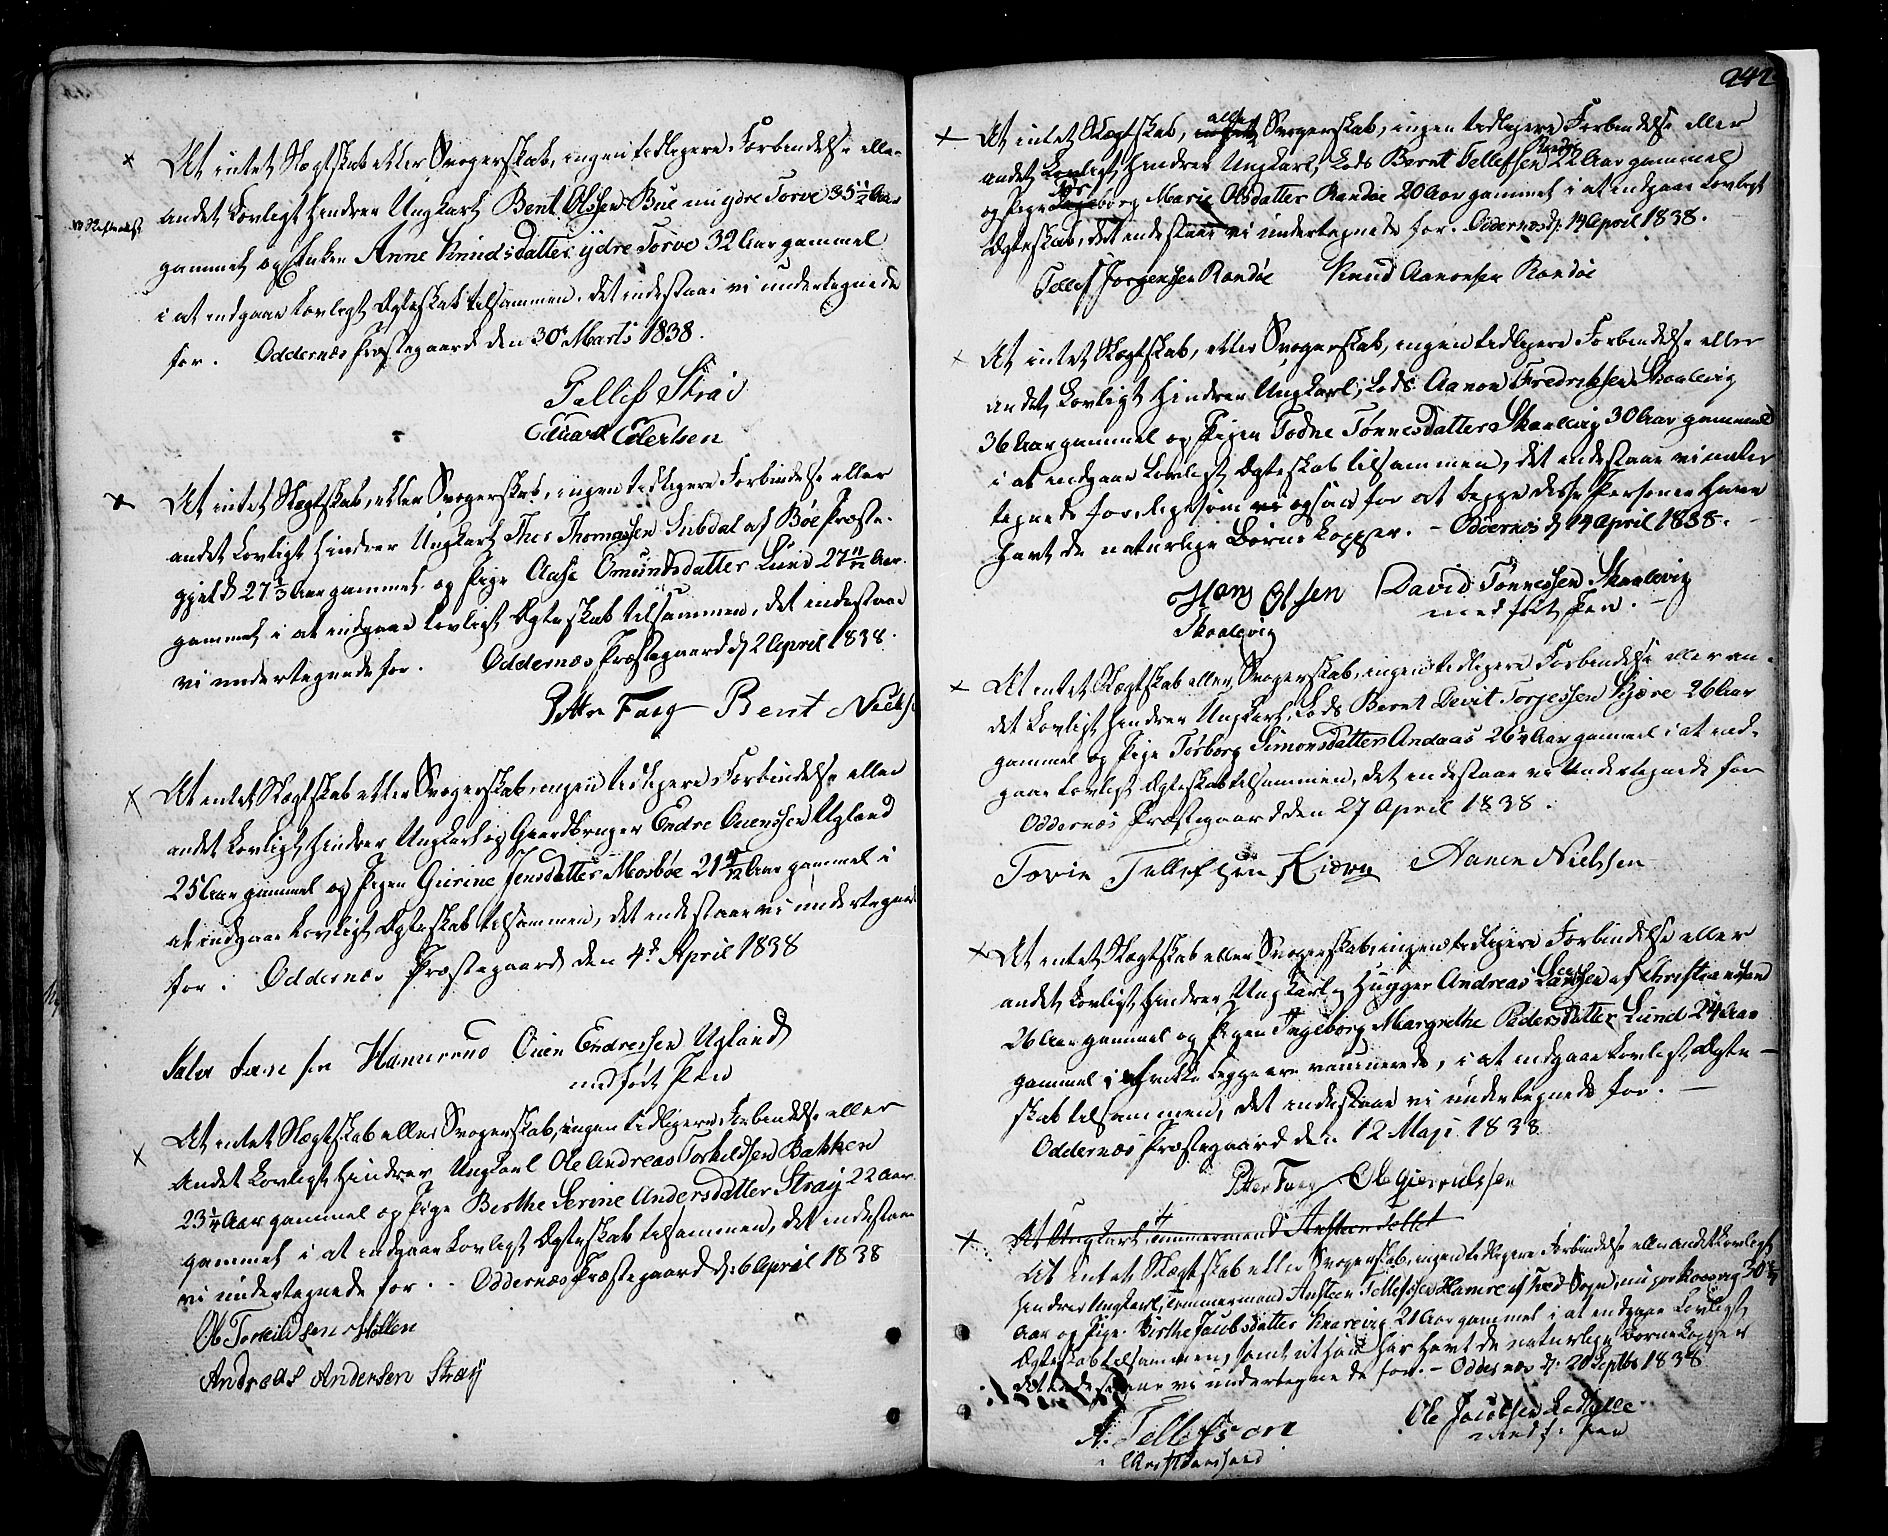 At intet Slægtskab eller Svogerskab, ingen tidligere Forbindelse eller
andet Lovligt hindrer Ungkarl Bent Olssen Bue nu ydre Torve 35 1/2 Aar
gammel og Enken Anne Knudsdatter ydre Torve 32 Aar gammel
i at indgaae Lovligt Ægteskab tilsammen, det indestaae vi undertegnede
for. Oddernæs Præstegaard den 30t Marts 1838.
Tellef Strai
Eduard Edertsen
At intet Slægtskab, eller Svogerskab, ingen tidligere Forbindelse eller
andet Lovligt hindrer Ungkarl Thes Thomassen af Bøe Præste-
gjeld 27 1/3 Aar gammel og Pige Aase Omundsdatter Lund 27 11/12 Aar
gammel i at indgaae Lovligt Ægteskab tilsammen, det indestaae
vi undertegnede for. Oddernæs Præstegaard d 2 April 1838.
Petter Faeg Bent Niels
At intet Slægtskab eller Svogerskab, ingen tidligere Forbindelse eller
andet Lovligt hindrer Ungkarl og Gaardbruger Endre Ouenssen Ugland
25 Aar gammel og Pigen Gurine Jensdatter Mosbøe 21 Aar gammel i
at indgaae Lovligt Ægteskab tilsammen, det indestaae vi undertegnede
for. Oddernæs Præstegaard den 4de April 1838
Ouen Endresen Ugland
med ført Pen
At intet Slægtskab eller Svogerskab, ingen tidligere Forbindelse eller
andet Lovligt hindrer Ungkarl Ole Andreas Torkeldsen Bakken
23 1/4 Aar gammel og Pige Berthe Serine Andersdatter Straij 22 Aar
gammel i at indgaae Lovligt Ægteskab tilsammen, det indestaae
vi undertegnede for. - Oddernæs Præstegaard d: 6 April 1838
Ole Torkildsen Møllen
Andreas Andersen Straiy
242
At intet Slægtskab, eller Svogerskab, ingen tidligere Forbindelse eller
andet Lovligt hindrer Ungkarl, Lods Bernt Tellefsen Randøe 22 Aar gammel
og Pige Marie Olsdatter Randøe 20 Aar gammel i at indgaae Lovligt
Ægteskab, det indestaae vi undertegnede for. Oddernæs d: 14 April 1838.
Tellef Jørgensen Randøe Knud Aanonsen Randøe
At intet Slægtskab, eller Svogerskab, ingen tidligere Forbindelse eller
andet Lovligt hindrer Ungkarl, Lods Aanon Fredriksen Skaalevig
36 Aar gammel og Pigen Todne Tønnesdatter Skaalevig 30 Aar gammel
i at indgaae Lovligt Ægteskab tilsammen, det indestaae vi under
tegnede for, ligesom vi ogsaa for at begge disse Personer have
havt de naturlige Børnekopper. - Oddernæs d 14 April 1838.
Hans Olsen David Tønnessen Skaalevig
Skaalevig med ført Pen.
At intet Slægtskab eller Svogerskab, ingen tidligere Forbindelse eller an-
det Lovligt hindrer Ungkarl, Lods Bernt Devit Torgessen Kjære 26 Aar
gammel og Pige Torborg Simonsdatter Andaas 26 1/4 Aar gammel i at ind-
gaae Lovligt Ægteskab tilsammen, det indestaae vi Undertegnede for
Oddernæs Præstegaard den 27 April 1838.
Tovie Tellefsen Aanen Nielssen
At intet Slægtskab eller Svogerskab, ingen tidligere Forbindelse eller
andet Lovligt hindrer Ungkarl og Hugger Andreas Larssen af Christiansand
26 Aar gammel og Pigen Ingeborg Margrethe Pedersdatter Lund 24 Aar
gammel, hvilke begge ere vaccinerede, i at indgaae Lovligt Ægte-
skab tilsammen, det indestaae vi undertegnede for.
Oddernæs Præstegaard den 12 Maji 1838
Petter Faeg Ole Gjerruldssen
At Ungkarl Tømmermand Ansteen Tellef
At intet Slægtskab eller Svogerskab, ingen tidligere Forbindelse eller andet Lovligt
hindrer Ungkarl, Tømmermand Ansteen Tellefssen Hamre af Sogn, nu 30
Aar og Pige Birthe Jacobsdatter Kaarevig 21 Aar gammel i at indgaae Lovligt
Ægteskab tilsammen, samt at han har havt de naturlige Børnekopper
det indestaae vi undertegnede for. - Oddernæs d: 20 Septbr 1838
A. Tellefsson Ole Jacobsen
Christiansand med f: Pen